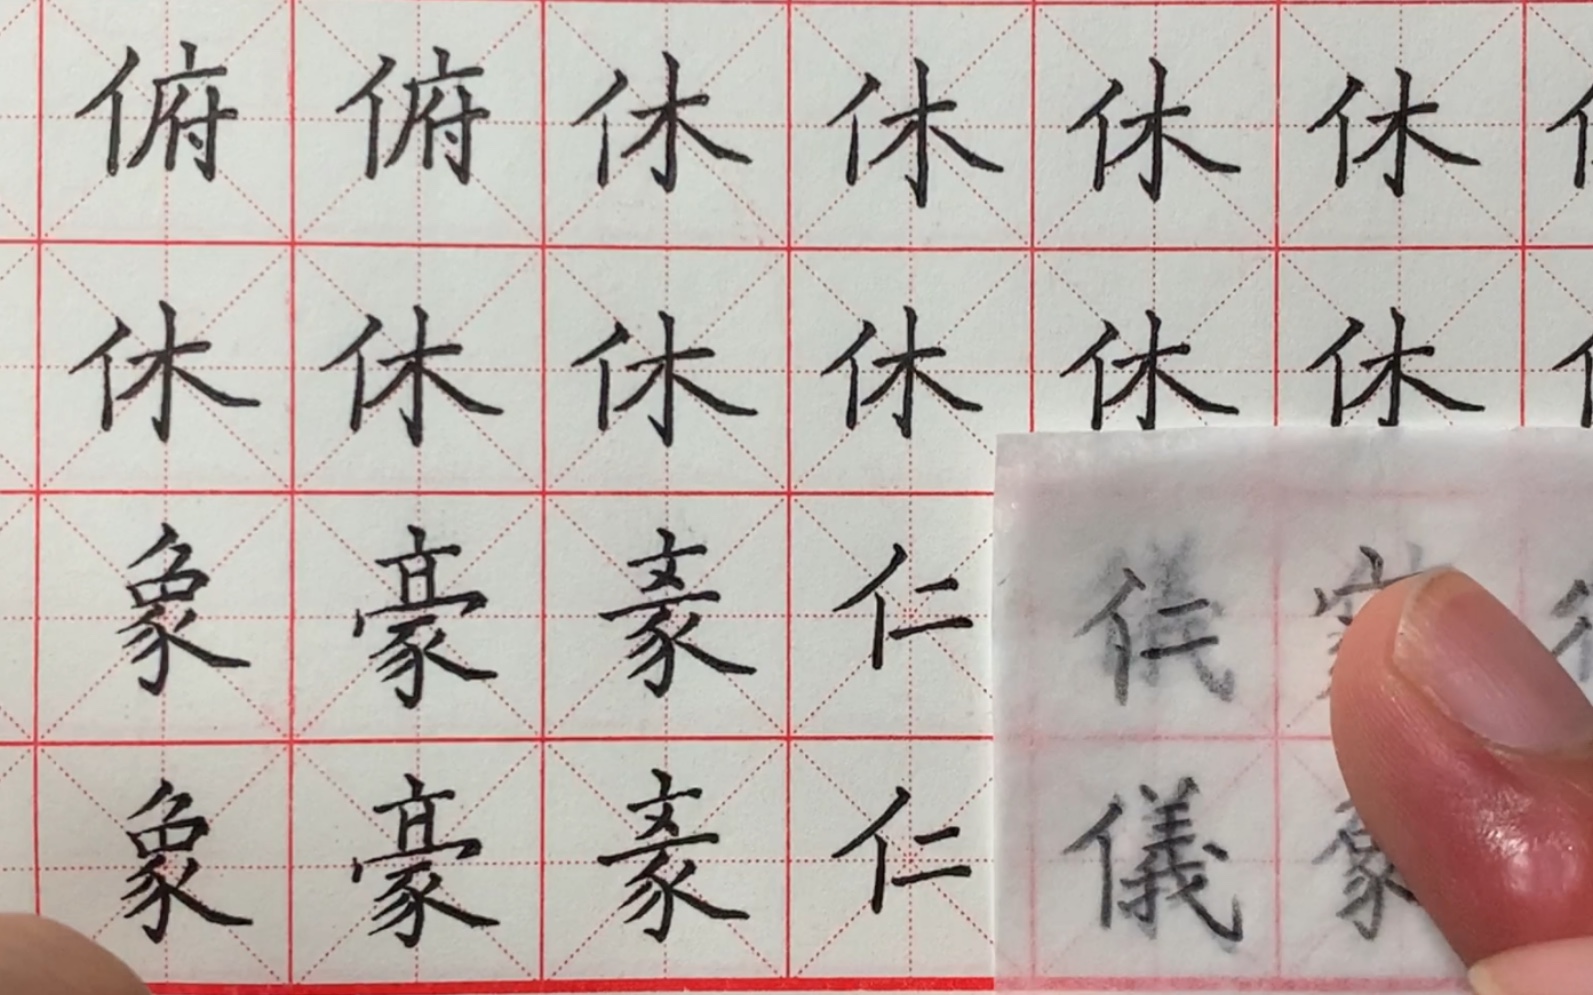 俯俯休休休休
休休休休休休
象豪仁
象豪仁儀